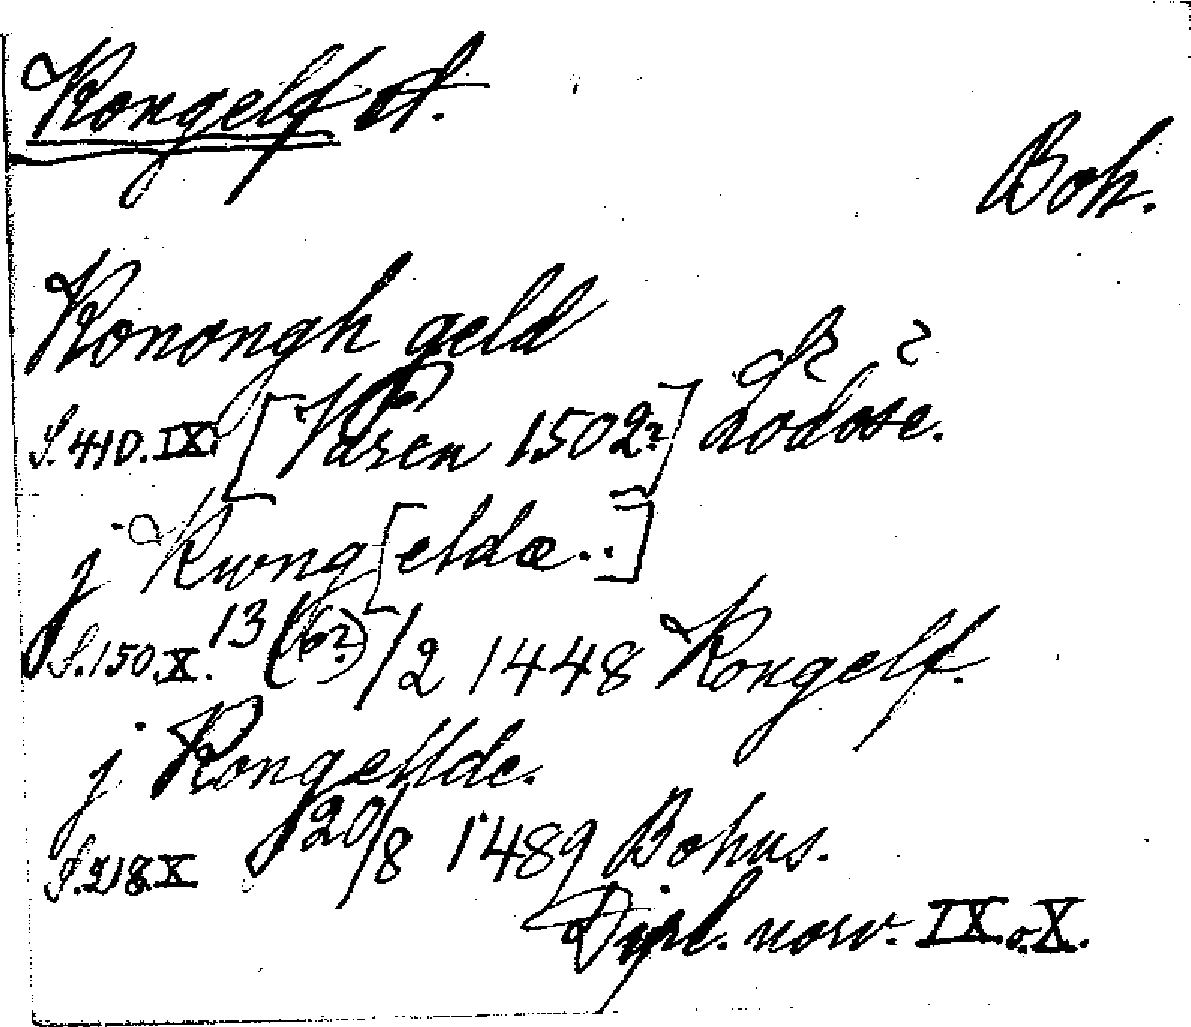 Kongelf st.
Boh.
Konongh geld
S. 410. IX. [Våren 1502?] Lödöse. ?
j Kwng[eldæ..]
S. 150. X. 13 ( 16?)/2 1448 Kongelf.
j Kongellde.
S. 218. X 20/8 1489 Bohus.
Dipl. norv. IX. o. X.